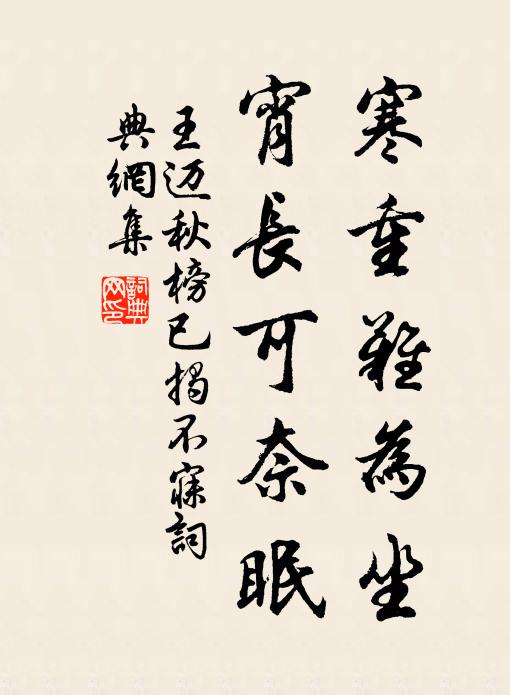 寒重難為坐
宵長可奈眠
王迈秋榜已揭不寐詞
典網集
詞典
网印